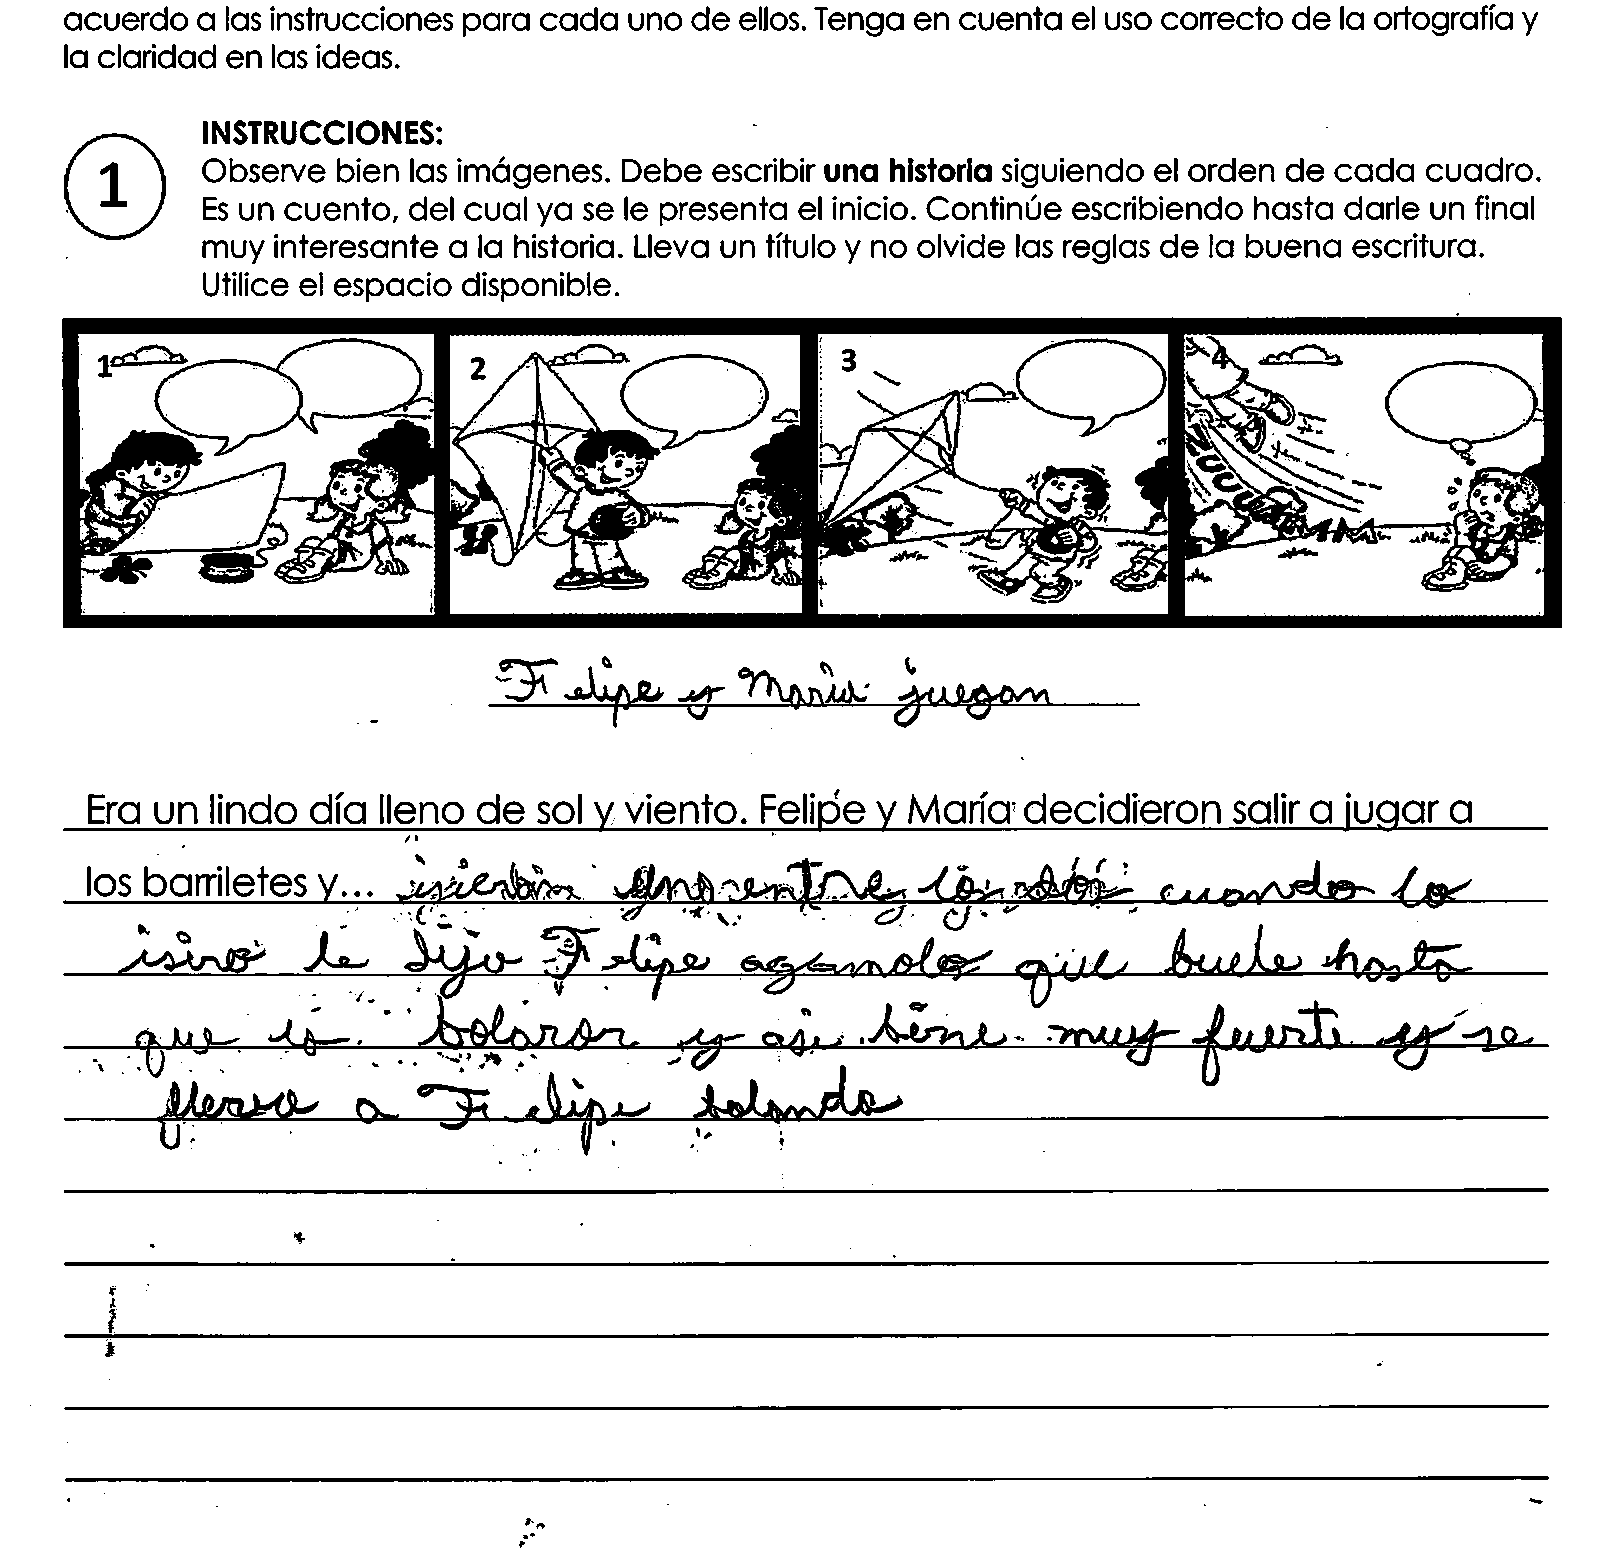 acuerdo a las instrucciones para cada uno de ellos. Tenga en cuenta el uso correcto de la ortografía y
la claridad en las ideas.
1
INSTRUCCIONES:
Observe bien las imágenes. Debe escribir una historia siguiendo el orden de cada cuadro.
Es un cuento, del cual ya se le presenta el inicio. Continúe escribiendo hasta darle un final
muy interesante a la historia. Lleva un título y no olvide las reglas de la buena escritura.
Utilice el espacio disponible.
1 2 3 4
Felipe y María juegan
Era un lindo día lleno de sol y viento. Felipe y María decidieron salir a jugar a
los barriletes y... isieron uno entre los dos cuando lo
isiro le dijo Felipe agamolo que buele hasta
que lo bolaron y asi bine muy fuerte y se
lleva a Felipe bolando